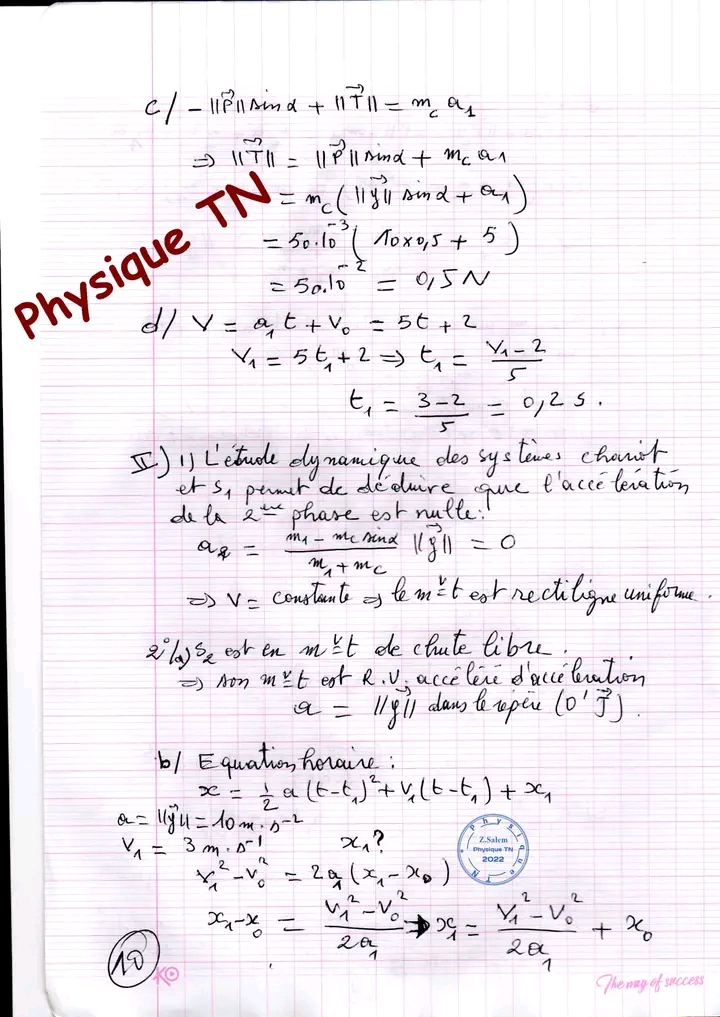 c/ - ||P⃗|| sin α + ||T⃗|| = m_c a₁
⇒ ||T⃗|| = ||P⃗|| sin α + m_c a₁
= m_c ( ||g⃗|| sin α + a₁ )
= 50.10⁻³ ( 10×0,5 + 5 )
= 50.10⁻² = 0,5 N
Physique TN
d/ V = a₁ t + V₀ = 5t + 2
V₁ = 5 t₁ + 2 ⇒ t₁ = (V₁ - 2) / 5
t₁ = (3 - 2) / 5 = 0,2 s.
II) 1) L'étude dynamique des systèmes chariot
et S₁ permet de déduire que l'accélération
de la 2ème phase est nulle:
a₂ = (m₁ - m_c sin α) / (m₁ + m_c) ||g⃗|| = 0
⇒ V = constante ⇒ le mᵛᵗ est rectiligne uniforme.
2°/a) S₂ est en mᵛᵗ de chute libre.
⇒ son mᵛᵗ est R.V. accéléré d'accélération
a = ||g⃗|| dans le repère (O' J⃗).
b/ Equation horaire :
x = ½ a (t - t₁)² + V₁ (t - t₁) + x₁
a = ||g⃗|| = 10 m.s⁻²
V₁ = 3 m.s⁻¹ x₁ ?
V₁² - V₀² = 2a₁ (x₁ - x₀)
x₁ - x₀ = (V₁² - V₀²) / 2a₁ ⇒ x₁ = (V₁² - V₀²) / 2a₁ + x₀
Physique TN
Z.Salem
Physique TN
2022
10
The way of success